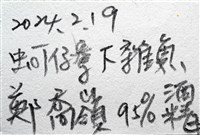 2024.2.19
虫叮仔寮下雜貨
鄭喬嶺 95% 酒精